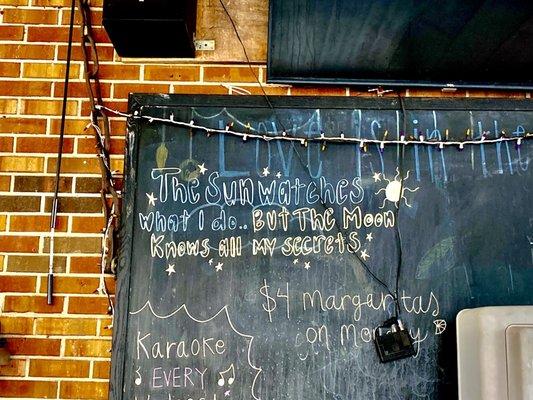 Love is in the
The Sun watches
what I do.. But The Moon
Knows all my secrets.
$4 margaritas
on Monday
Karaoke
EVERY